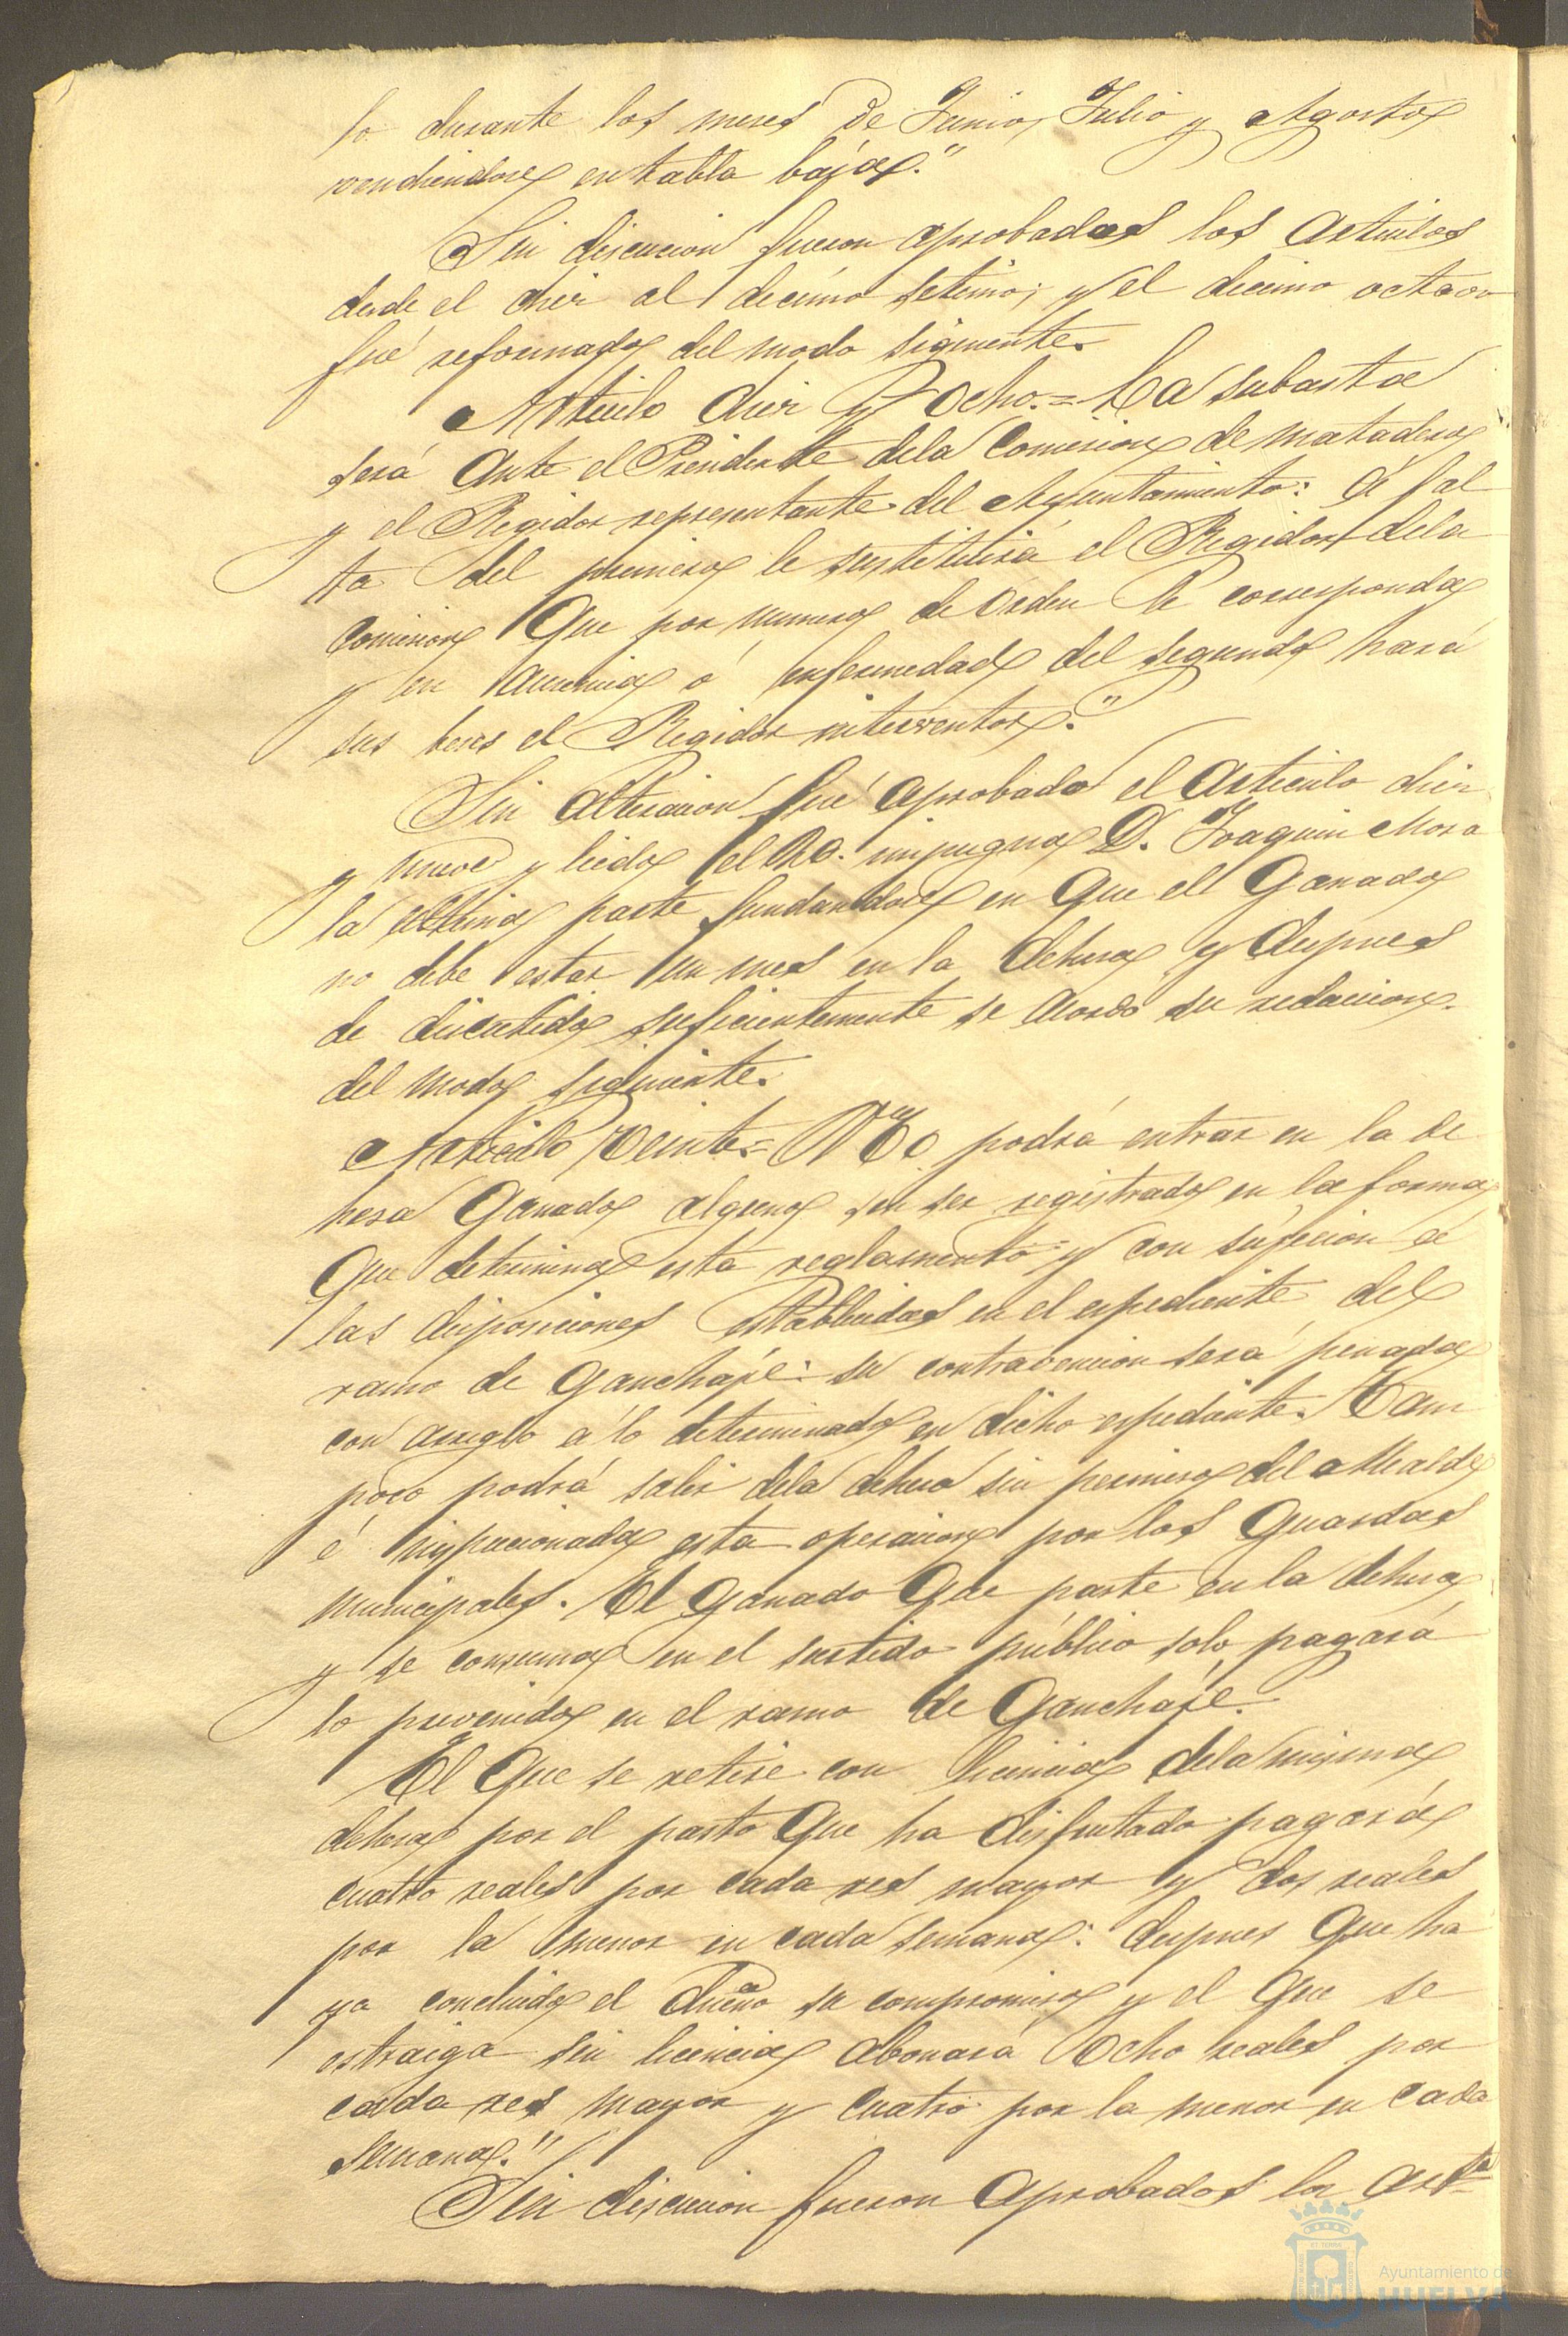 lo durante los meses de Junio, Julio y Agosto
vendiendose en tabla baja."
Sin discucion fueron aprobados los Articulos
desde el diez al decimo setimo; y el decimo octavo
fué reformado del modo siguiente.
Articulo diez y ocho.= La subasta
será ante el Presidente dela Comision de matadero
y el Regidor representante del Ayuntamiento: á fal
ta del primero le sustituirá el Regidor dela
comision que por numero de orden le corresponda
y en ausencia ó enfermedad del segundo hará
sus veces el Regidor interventor."
Sin alteracion fué aprobado el articulo diez
y nueve y leido el 20. impugna D. Joaquin Mora
la ultima parte fundandose en que el Ganado
no debe estar un mes en la dehesa y despues
de discutido suficientemente se acordó su redaccion
del modo siguiente.
Articulo Veinte.= No podrá entrar en la de
hesa Ganado alguno sin ser registrado en la forma
que determina este reglamento y con sujecion á
las disposiciones establecidas en el espediente del
ramo de Ganchaje: su contravencion será penada
con arreglo á lo determinado en dicho espediente. Tam
poco podrá salir dela dehesa sin permiso del Alcalde
é inspeccionada esta operacion por los Guardas
municipales. El Ganado que paste en la dehesa
y se consuma en el surtido público solo pagará
lo prevenido en el ramo de Ganchaje.
El que se retire con licencia dela misma
dehesa por el pasto que ha disfrutado pagará
cuatro reales por cada res mayor y dos reales
por la menor en cada semana: despues que ha
ya concluido el dueño su compromiso y el que se
estraiga sin licencia abonará ocho reales por
cada res mayor y cuatro por la menor en cada
semana."
Sin discucion fueron aprobados los art.
Ayuntamiento de
HUELVA